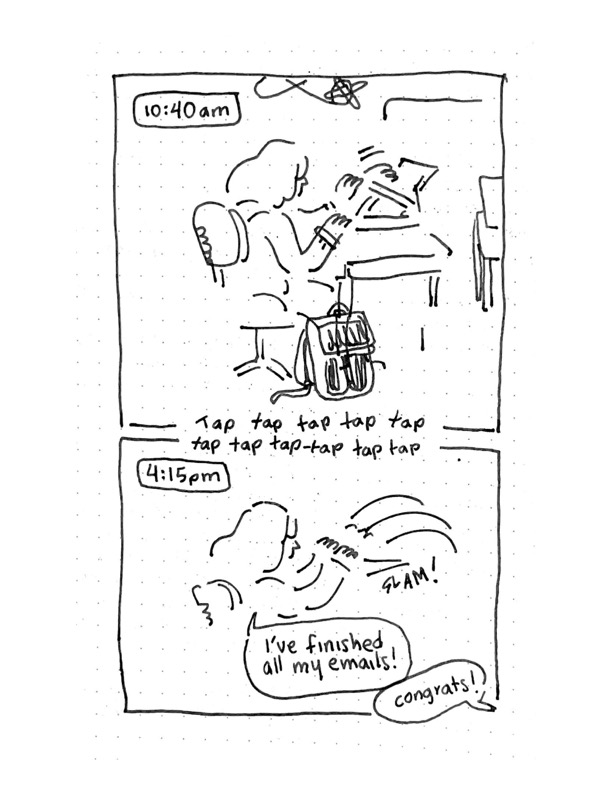 10:40am
Tap tap tap tap tap
tap tap tap-tap tap tap
4:15pm
SLAM!
I've finished
all my emails!
congrats!